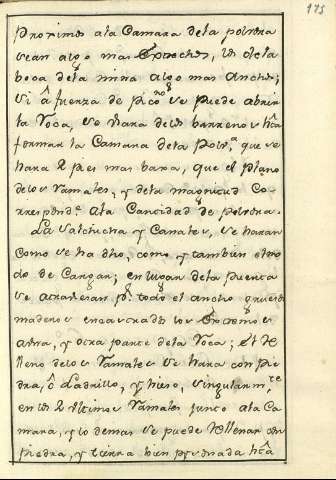 115
proximos ala Camara dela polvora
sean algo mas Estrechos, los dela
boca dela mina algo mas anchos;
Si â fuerza de pico no se puede abrir
la Roca, se hara de los barrenos hta
formar la Camara dela Polv.a que se
hara 2 pies mas baxa, que el plano
delos Ramales, y dela magnitud Co-
rrespond.e ala Cantidad de polvora.
La Salchicha y Canales, se haran
como se ha dho, como y tambien el mo-
do de Cargar; en lugar dela puerta
se atravesaran p.r todo el ancho
maderos encaxados los Extremos
a una, y otra parte dela Roca; El Re-
lleno delos Ramales se hara con pie
dra, ô Ladrillo, y hieso, singularm.te
en los 2 Ultimos Ramales junto ala Ca
mara, y lo demas se puede Rellenar con
piedra, y tierra bien pisonada hta